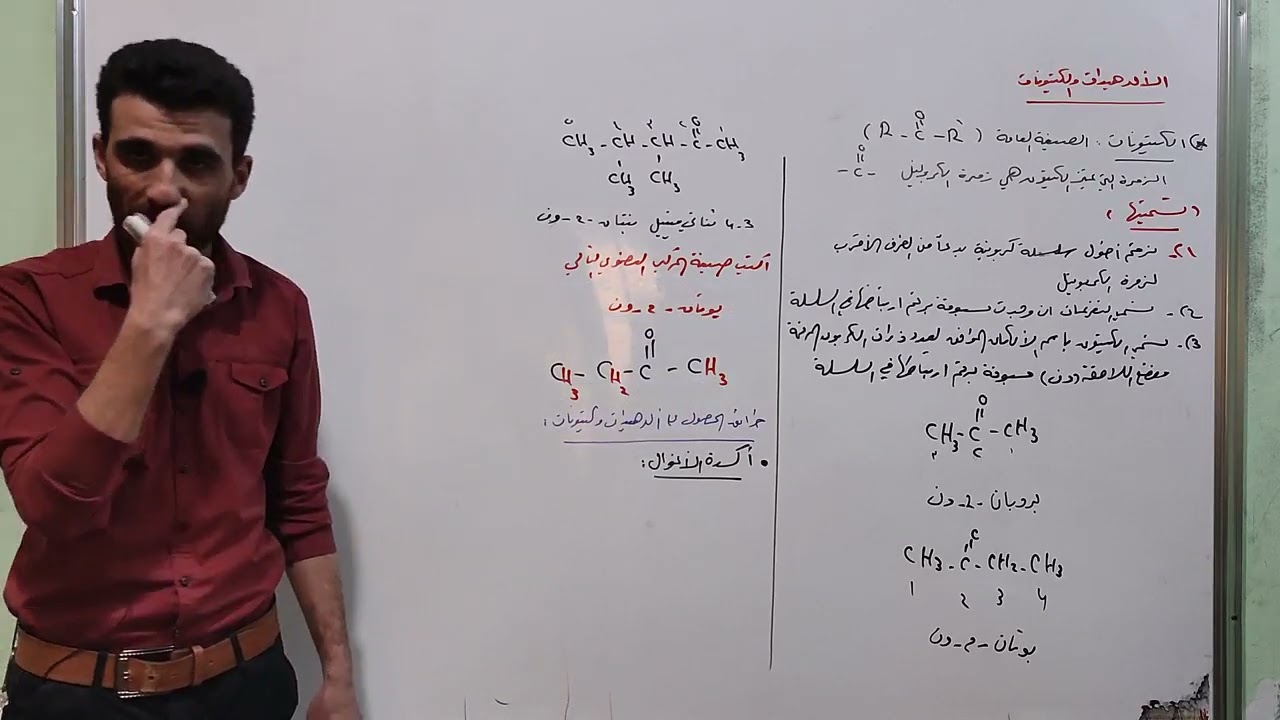 الألدهيدات والكيتونات
الكيتونات: الصيغة العامة (R-C-R`)
O
الزمرة التي تميز الكيتون هي زمرة الكربونيل -C-
O
(تسميتها)
1- نرقم أطول سلسلة كربونية بدءاً من الطرف الأقرب
لزمرة الكربونيل
2- نسمي التفرعات ان وجدت مسبوقة برقم ارتباطها في السلسلة
3- نسمي الكيتون باسم الألكان الموافق لعدد ذرات الكربون المرقمة
مع اللاحقة (ون) مسبوقة برقم ارتباطها في السلسلة
O
CH3-C-CH3
3 2 1
بروبان-2-ون
O
CH3-C-CH2-CH3
1 2 3 4
بوتان-2-ون
O
CH3-CH-CH-C-CH3
CH3 CH3
3-4 ثنائي ميتيل بنتان-2-ون
اكتب صيغة المركب العضوي التالي
بوتان-2-ون
O
CH3-CH2-C-CH3
طرائق الحصول على ألدهيدات وكيتونات:
• أكسدة الأغوال: